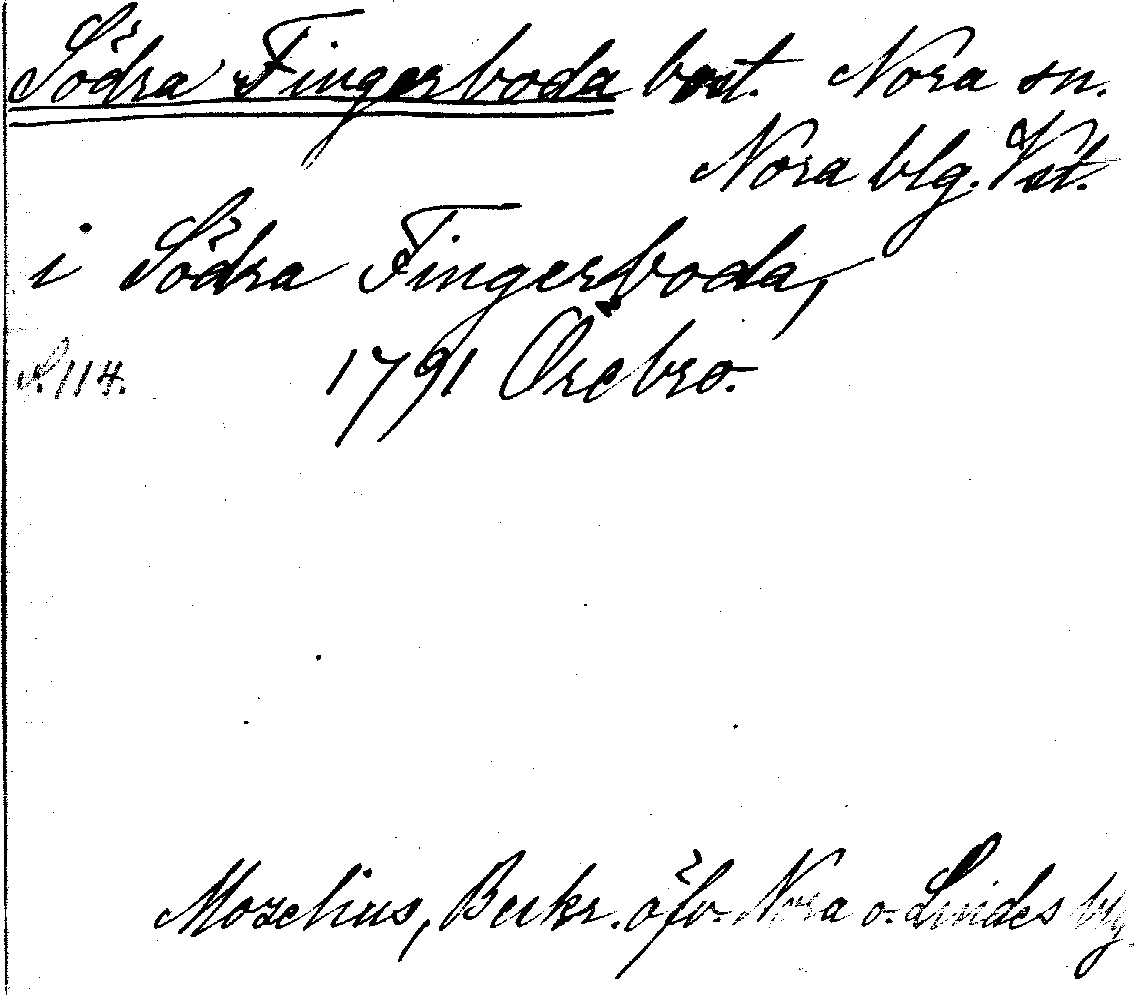 Södra Fingerboda bost. Nora sn.
Nora blg. Vst.
i Södra Fingerboda,
s. 114. 1791 Örebro.
Mozelius, Beskr. öfv. Nora o. Lindes blg